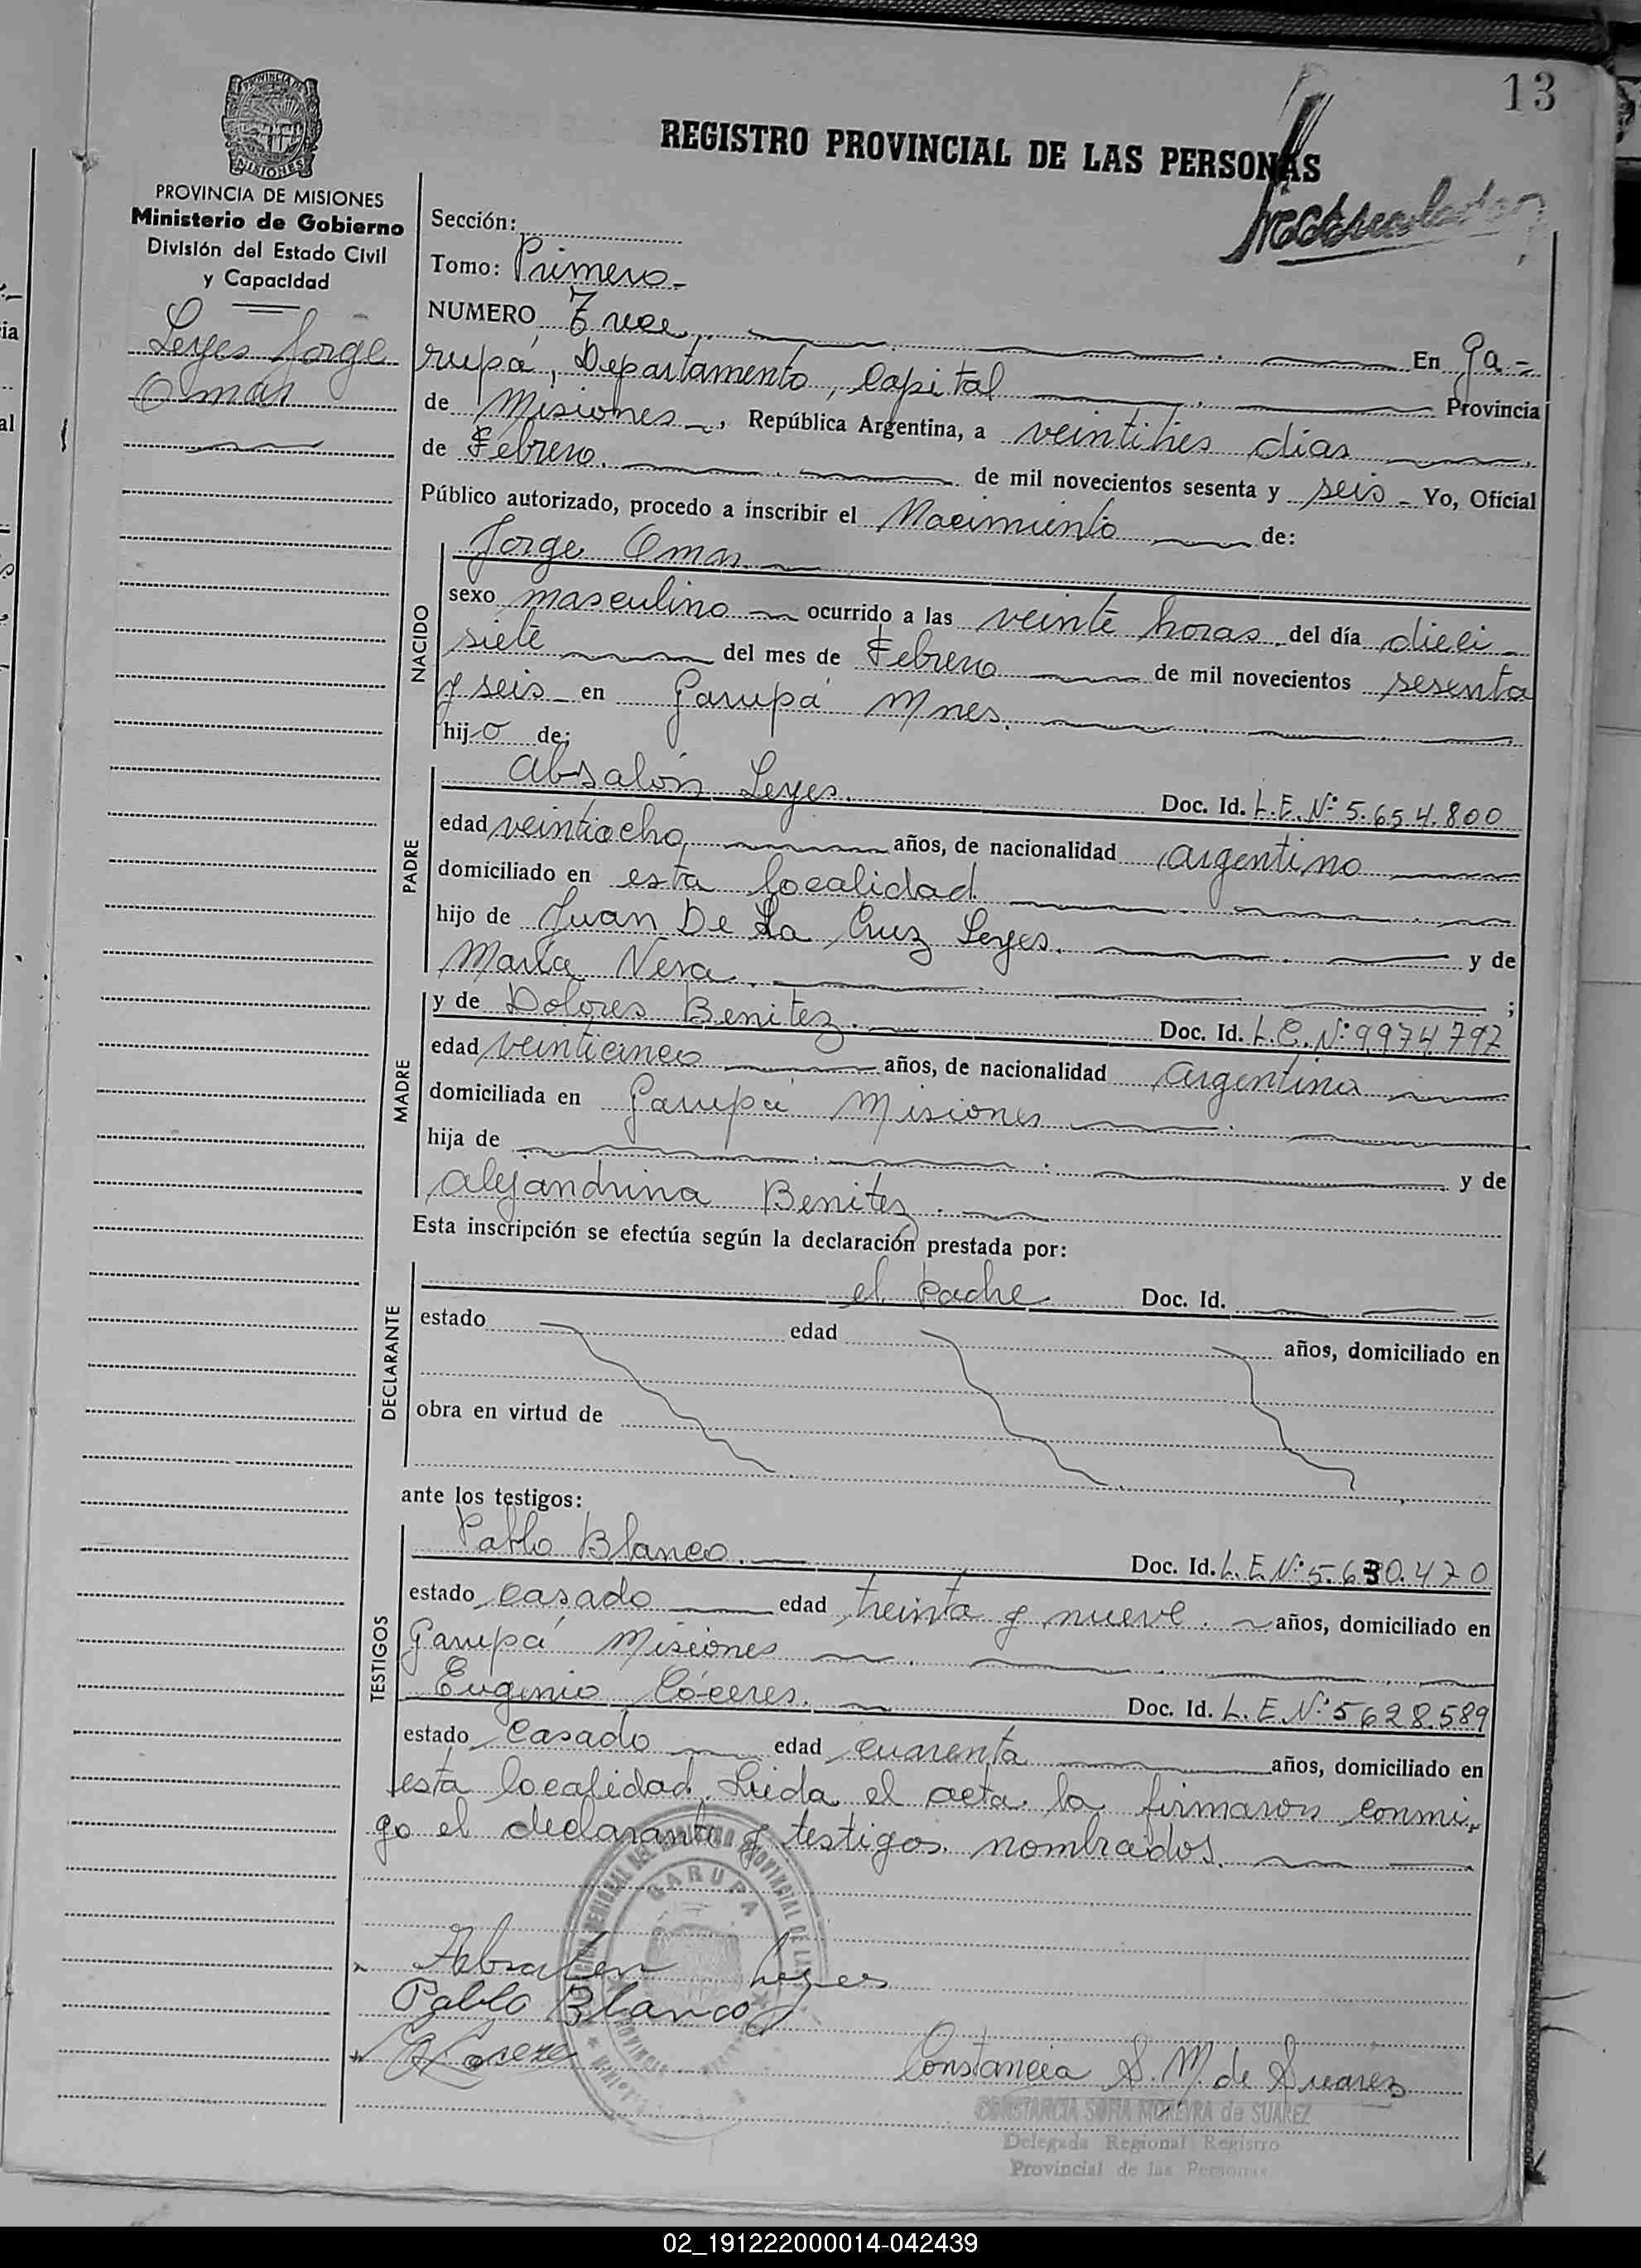 13
PROVINCIA DE MISIONES
REGISTRO PROVINCIAL DE LAS PERSONAS
PROVINCIA DE MISIONES
Ministerio de Gobierno
División del Estado Civil
y Capacidad
Leyes Jorge
Omar
Sección:
Tomo: Primero
NUMERO Trece En Ga-
rupá, Departamento, Capital Provincia
de Misiones, República Argentina, a veintitres dias
de Febrero. de mil novecientos sesenta y seis - Yo, Oficial
Público autorizado, procedo a inscribir el Nacimiento de:
NACIDO
Jorge Omar
sexo masculino ocurrido a las veinte horas del día dieci-
siete del mes de Febrero de mil novecientos sesenta
y seis en Garupá Mnes.
hijo de:
PADRE
Absalón Leyes. Doc. Id. L.E. Nº 5.654.800
edad veintiocho años, de nacionalidad argentino
domiciliado en esta localidad
hijo de Juan De La Cruz Leyes. y de
María Vera ;
MADRE
y de Dolores Benitez. Doc. Id. L.C. Nº 9974797
edad veinticinco años, de nacionalidad argentina
domiciliada en Garupá Misiones
hija de y de
Alejandrina Benitez.
Esta inscripción se efectúa según la declaración prestada por:
DECLARANTE
el Padre Doc. Id.
estado edad años, domiciliado en
obra en virtud de
ante los testigos:
TESTIGOS
Pablo Blanco. Doc. Id. L.E. Nº 5.630.470
estado casado edad treinta y nueve. años, domiciliado en
Garupá Misiones
Eugenio Cáceres. Doc. Id. L.E. Nº 5628.589
estado casado edad cuarenta años, domiciliado en
esta localidad. Leida el acta la firmaron conmi-
go el declarante y testigos nombrados.
GARUPA
Absalon Leyes
Pablo Blanco
Constancia S. M. de Suarez
CONSTANCIA SOFIA MOREYRA de SUAREZ
Delegada Regional Registro
Provincial de las Personas
02_191222000014-042439